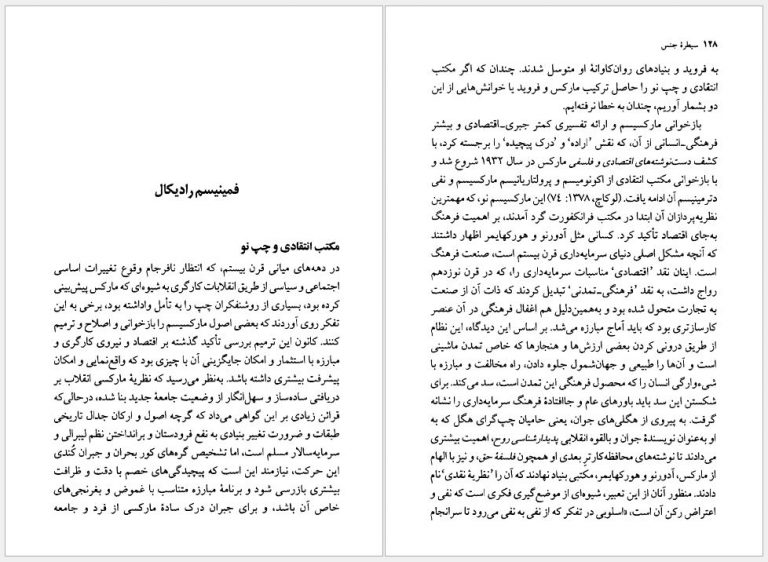 فمینیسم رادیکال
مکتب انتقادی و چپ نو
در دهه‌های میانی قرن بیستم، که انتظار نافرجام وقوع تغییرات اساسی
اجتماعی و سیاسی از طریق انقلابات کارگری به شیوه‌ای که مارکس پیش‌بینی
کرده بود، بسیاری از روشنفکران چپ را به تأمل واداشته بود، برخی به این
تفکر روی آوردند که بعضی اصول مارکسیسم را بازخوانی و اصلاح و ترمیم
کنند. کانون این ترمیم بررسی تأکید گذشته بر اقتصاد و نیروی کارگری و
مبارزه با استثمار و امکان جایگزینی آن با چیزی بود که واقع‌نمایی و امکان
پیشرفت بیشتری داشته باشد. به‌نظر می‌رسید که نظریهٔ مارکسی انقلاب بر
دریافتی ساده‌ساز و سهل‌انگار از وضعیت جامعهٔ جدید بنا شده، درحالی‌که
قرائن زیادی بر این گواهی می‌داد که گرچه اصول و ارکان جدال تاریخی
طبقات و ضرورت تغییر بنیادی به نفع فرودستان و برانداختن نظم لیبرالی و
سرمایه‌سالار مسلم است، اما تشخیص گره‌های کور بحران و جبران کُندی
این حرکت، نیازمند این است که پیچیدگی‌های خصم با دقت و ظرافت
بیشتری بازرسی شود و برنامهٔ مبارزه متناسب با غموض و بغرنجی‌های
خاص آن باشد، و برای جبران درک سادهٔ مارکسی از فرد و جامعه
۱۲۸ سیطرهٔ جنس
به فروید و بنیادهای روان‌کاوانهٔ او متوسل شدند. چندان که اگر مکتب
انتقادی و چپ نو را حاصل ترکیب مارکس و فروید یا خوانش‌هایی از این
دو بشمار آوریم، چندان به خطا نرفته‌ایم.
بازخوانی مارکسیسم و ارائه تفسیری کمتر جبری‌ـ‌اقتصادی و بیشتر
فرهنگی‌ـ‌انسانی از آن، که نقش ’اراده‘ و ’درک پیچیده‘ را برجسته کرد، با
کشف دست‌نوشته‌های اقتصادی و فلسفی مارکس در سال ۱۹۳۲ شروع شد و
با بازخوانی مکتب انتقادی از اکونومیسم و پرولتاریانیسم مارکسیسم و نفی
دترمینیسم آن ادامه یافت. (لوکاچ، ۱۳۷۸: ۷٤) این مارکسیسم نو، که مهمترین
نظریه‌پردازان آن ابتدا در مکتب فرانکفورت گرد آمدند، بر اهمیت فرهنگ
به‌جای اقتصاد تأکید کرد. کسانی مثل آدورنو و هورکهایمر اظهار داشتند
که آنچه مشکل اصلی دنیای سرمایه‌داری قرن بیستم است، صنعت فرهنگ
است. اینان نقد ’اقتصادی‘ مناسبات سرمایه‌داری را، که در قرن نوزدهم
رواج داشت، به نقد ’فرهنگی‌ـ‌تمدنی‘ تبدیل کردند که ذات آن از صنعت
به تجارت متحول شده بود و به‌همین‌دلیل هم اغفال فرهنگی در آن عنصر
کارسازتری بود که باید آماج مبارزه می‌شد. بر اساس این دیدگاه، این نظام
از طریق درونی کردن بعضی ارزش‌ها و هنجارها که خاص تمدن ماشینی
است و آن‌ها را طبیعی و جهان‌شمول جلوه دادن، راه مخالفت و مبارزه با
شیءوارگی انسان را که محصول فرهنگی این تمدن است، سد می‌کند. برای
شکستن این سد باید باورهای عام و جاافتادهٔ فرهنگ سرمایه‌داری را نشانه
گرفت. به پیروی از هگلی‌های جوان، یعنی حامیان چپ‌گرای هگل که به
او به‌عنوان نویسندهٔ جوان و بالقوه انقلابی پدیدارشناسی روح، اهمیت بیشتری
می‌دادند تا نوشته‌های محافظه‌کارتر بعدی او همچون فلسفهٔ حق، و نیز با الهام
از مارکس، آدورنو و هورکهایمر، مکتبی بنیاد نهادند که آن را ’نظریهٔ نقدی‘ نام
دادند. منظور آنان از این تعبیر، شیوه‌ای از موضع‌گیری فکری است که نفی و
اعتراض رکن آن است، «اسلوبی در تفکر که از نفی به نفی می‌رود تا سرانجام